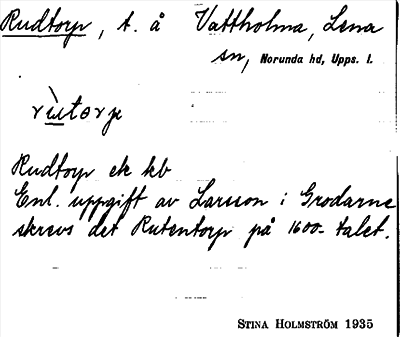 Rudtorp, t. å Vattholma, Lena
sn, Norunda hd, Upps. l.
rùtorp
Rudtorp ek kb
Enl. uppgift av Larsson i Grodarne
skrevs det Rutentorp på 1600-talet.
STINA HOLMSTRÖM 1935